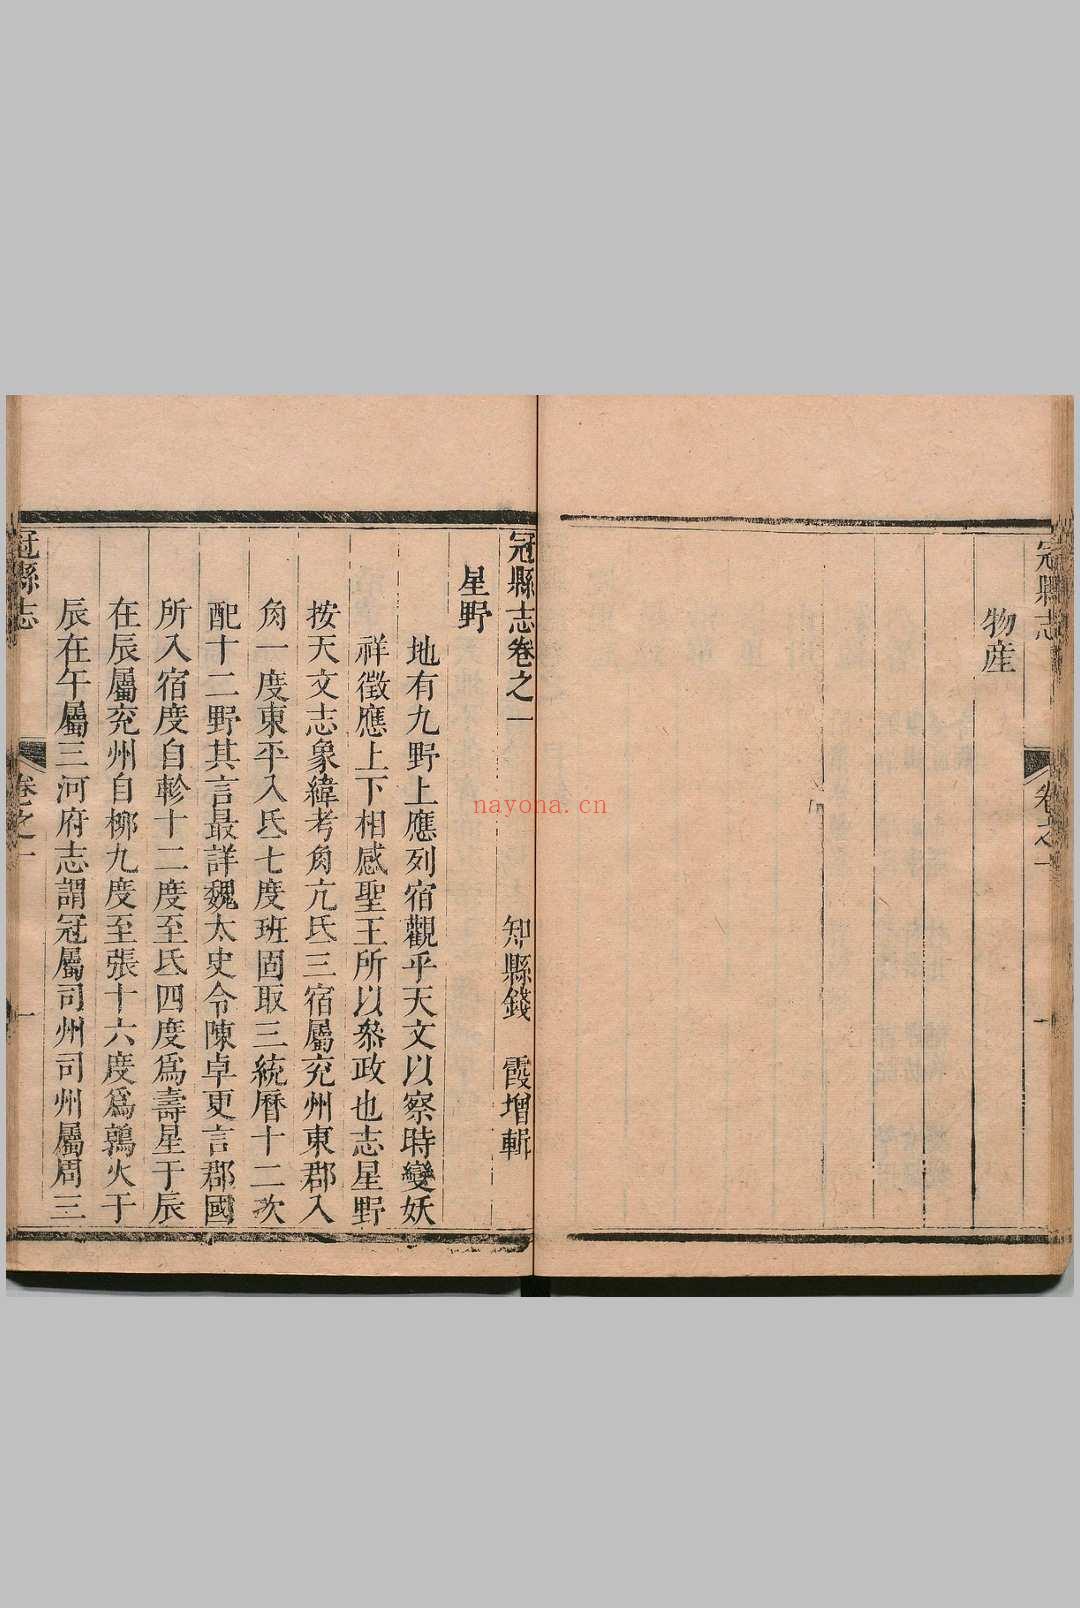 冠縣志
卷之一
一
物産
冠縣志卷之一
知縣錢　霞增輯
星野
地有九野上應列宿觀乎天文以察時變妖
祥徵應上下相感聖王所以叅政也志星野
按天文志象緯考角亢氐三宿屬兖州東郡入
角一度東平入氐七度班固取三統曆十二次
配十二野其言最詳魏太史令陳卓更言郡國
所入宿度自軫十二度至氐四度爲壽星于辰
在辰屬兖州自柳九度至張十六度爲鶉火于
辰在午屬三河府志謂冠屬司州司州屬周三
冠縣志
卷之一
一
nayona.cn